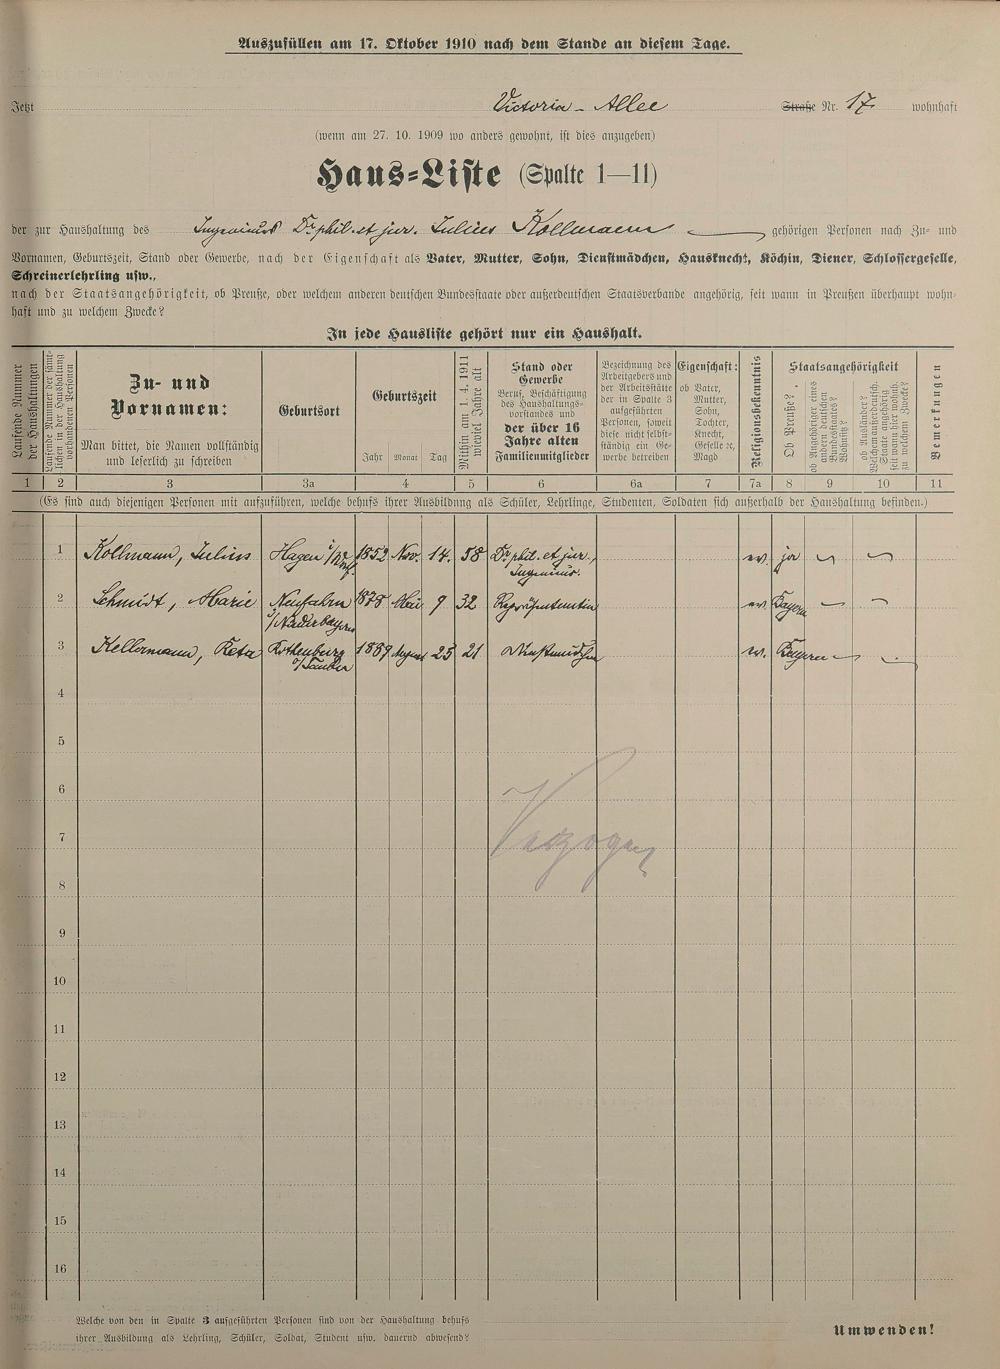 Auszufüllen am 17. Oktober 1910 nach dem Stande an diesem Tage.
Jetzt Victoria-Allee Straße Nr. 17 wohnhaft
(wenn am 27. 10. 1909 wo anders gewohnt, ist dies anzugeben)
Haus-Liste (Spalte 1—11)
der zur Haushaltung des Ingenieurs Dr. phil. et jur. Julius Kollmann gehörigen Personen nach Zu- und
Vornamen, Geburtszeit, Stand oder Gewerbe, nach der Eigenschaft als Vater, Mutter, Sohn, Dienstmädchen, Hausknecht, Köchin, Diener, Schlossergeselle,
Schreinerlehrling usw.,
nach der Staatsangehörigkeit, ob Preuße, oder welchem anderen deutschen Bundesstaate oder außerdeutschen Staatsverbande angehörig, seit wann in Preußen überhaupt wohn-
haft und zu welchem Zwecke?
In jede Hausliste gehört nur ein Haushalt.
Laufende Nummer der Haushaltungen
Laufende Nummer der sämt-
lichen in der Haushaltung
vorhandenen Personen
Zu- und
Vornamen:
Man bittet, die Namen vollständig
und leserlich zu schreiben
Geburtsort
Geburtszeit
Jahr Monat Tag
Mithin am 1. 4. 1911
wieviel Jahre alt
Stand oder
Gewerbe
Beruf, Beschäftigung
des Haushaltungs-
vorstandes und
der über 16
Jahre alten
Familienmitglieder
Bezeichnung des
Arbeitgebers und
der Arbeitsstätte
der in Spalte 3
aufgeführten
Personen, soweit
diese nicht selbst-
ständig ein Ge-
werbe betreiben
Eigenschaft:
ob Vater,
Mutter,
Sohn,
Tochter,
Knecht,
Geselle ꝛc,
Magd
Religionsbekenntnis
Staatsangehörigkeit
Ob Preuße?
ob Angehöriger eines
andern deutschen
Bundesstaates?
Wohnsitz?
ob Ausländer?
Welchem außerdeutsch.
Staate angehörig
seit wann hier wohnh.
zu welchem Zwecke?
Bemerkungen
1 2 3 3a 4 5 6 6a 7 7a 8 9 10 11
(Es sind auch diejenigen Personen mit aufzuführen, welche behufs ihrer Ausbildung als Schüler, Lehrlinge, Studenten, Soldaten sich außerhalb der Haushaltung befinden.)
1 Kollmann, Julius Hagen i/Westf. 1852 Nov. 14. 58 Dr. phil. et jur., Ingenieur. ev. ja
2 Schmidt, Marie Neufahrn i/Niederbayern 1878 Mai 9 32 Repräsentantin ev. Bayern
3 Kellermann, Reta Rothenburg o/Tauber 1889 August 23 21 Dienstmädchen ev. Bayern
4
5
6
Verzogen
7
8
9
10
11
12
13
14
15
16
Welche von den in Spalte 3 aufgeführten Personen sind von der Haushaltung behufs
ihrer Ausbildung als Lehrling, Schüler, Soldat, Student usw. dauernd abwesend?
Umwenden!